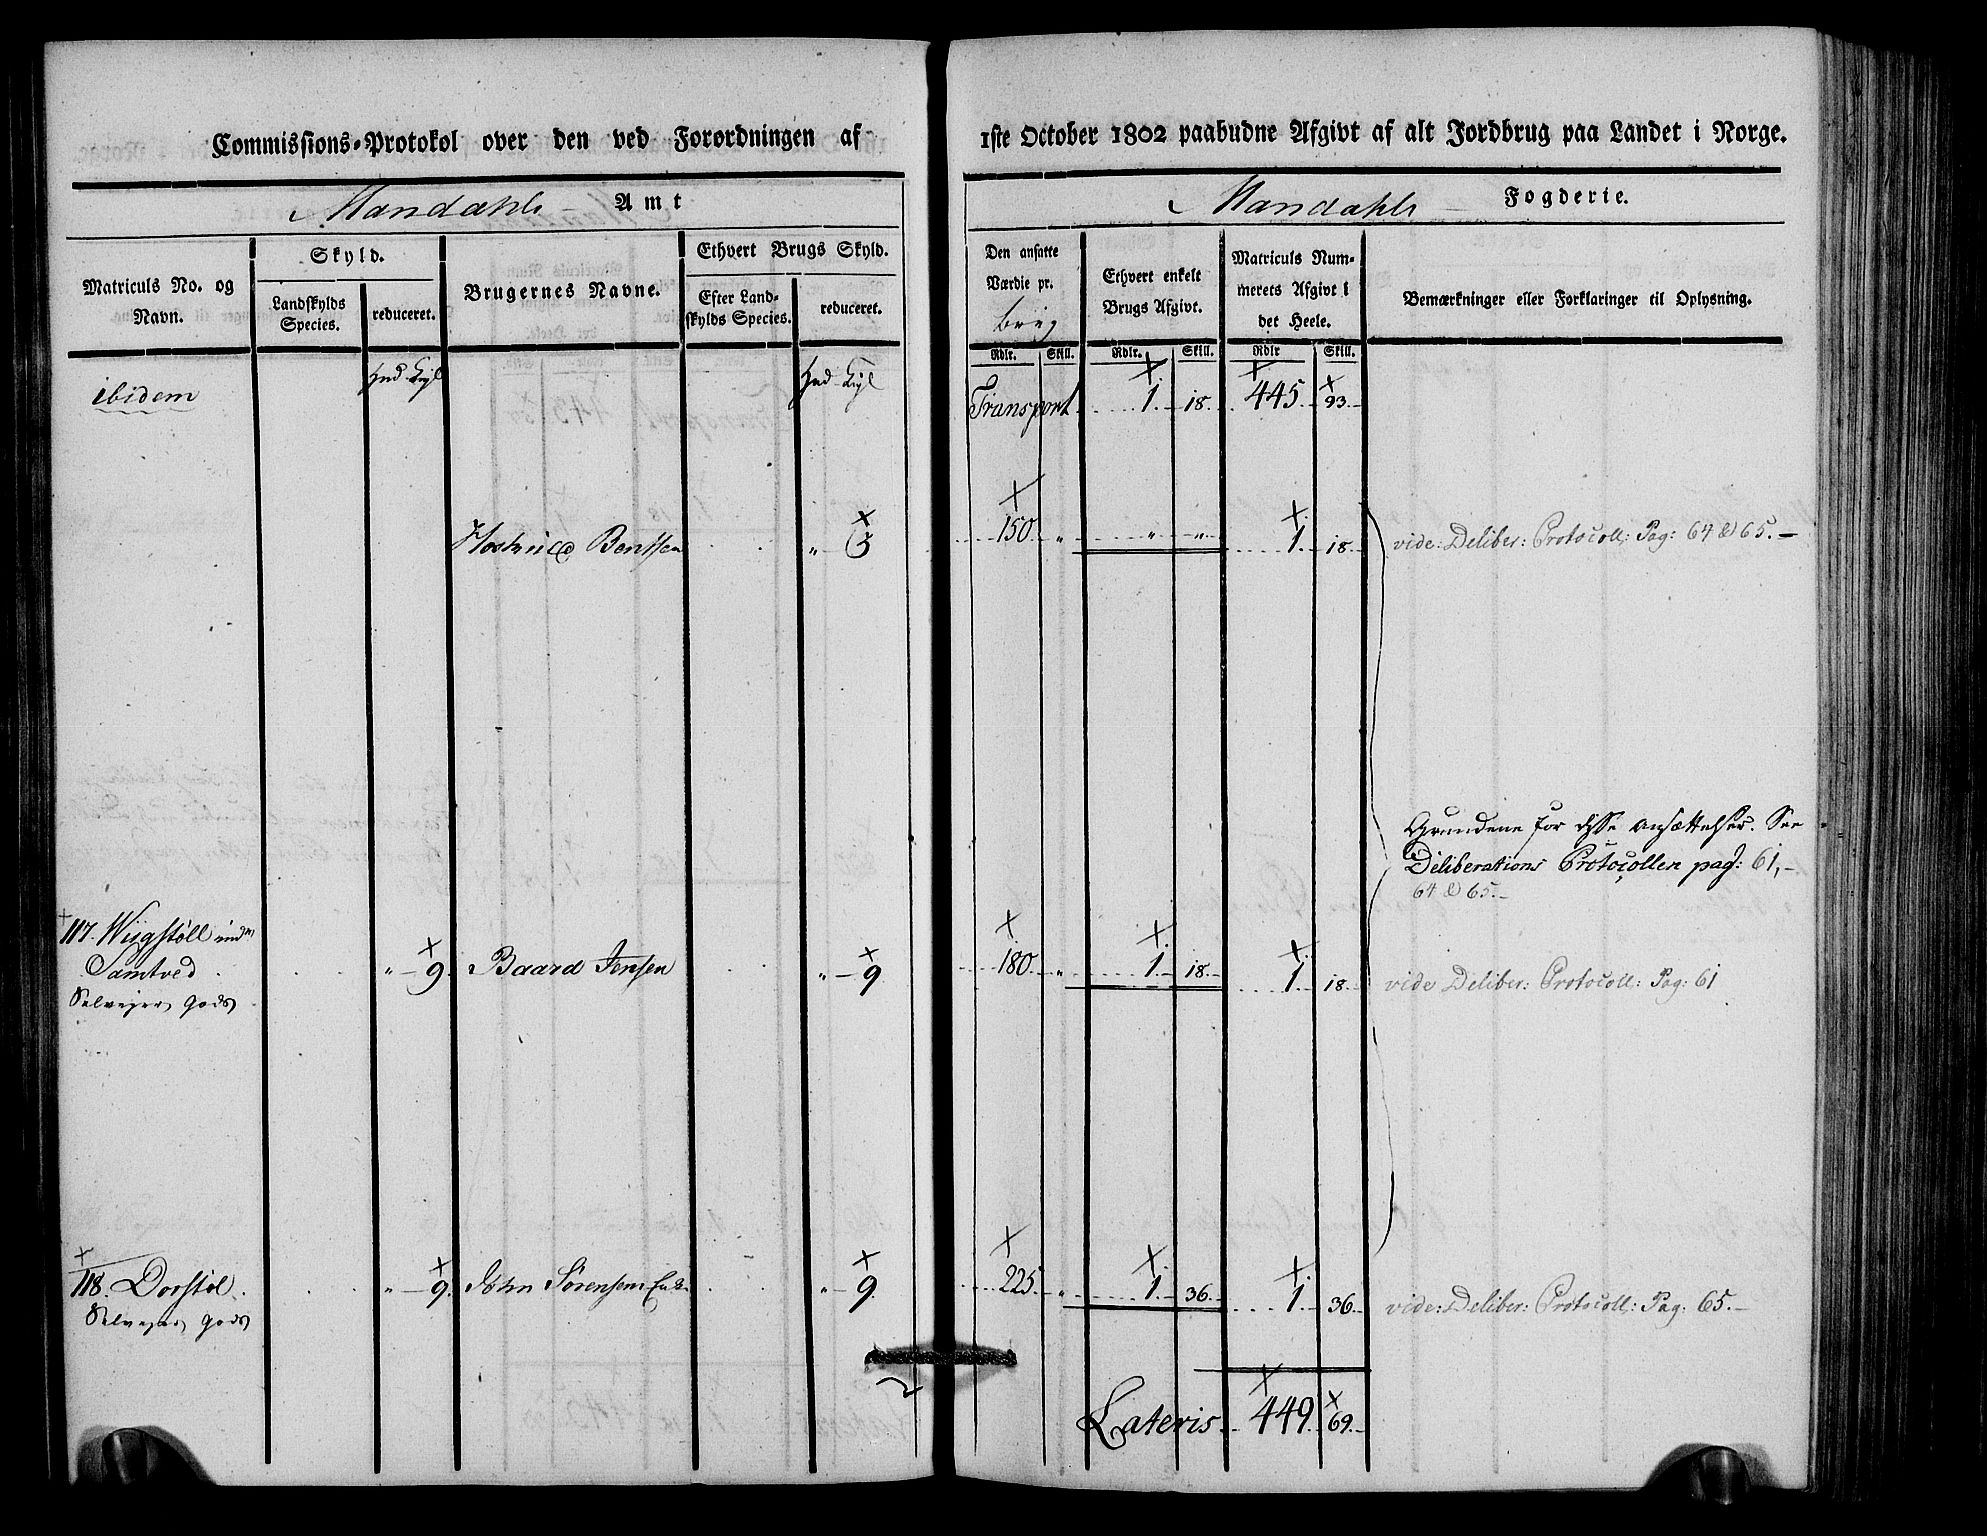 Commissions-Protokol over den ved Forordningen af 1ste October 1802 paabudne Afgivt af alt Jordbrug paa Landet i Norge.
Mandahls Amt
Mandahls Fogderie.
Matriculs No. og Navn.
Skyld.
Landskylds Species.
reduceret.
Brugernes Navne.
Ethvert Brugs Skyld.
Efter Landskylds Species.
reduceret.
Den ansatte Værdie pr. brug
Ethvert enkelt Brugs Afgivt.
Matriculs Nummerets Afgivt i det Heele.
Bemærkninger eller Forklaringer til Oplysning.
Rdlr. Skill. Rdlr. Skill. Rdlr Skill.
ibidem
Transport 1. 18. 445. 93.
Bentsen " 3 150 " " " 1. 18 vide: Deliber: Protocoll: Pag: 64 & 65.
Grundene for disse ansættelser. See
Deliberations Protocollen pag: 61,
64 & 65.
117. Wiigstøll
Samtved " 9. Baard Jensen " 9. 180 " 1. 18 1. 18 vide Deliber: Protocoll: Pag: 61
Selvejer Gods
118. Dorstøl. " 9. John Sørensens Enke " 9. 225 " 1. 36. 1. 36. vide: Deliber: Protocoll: Pag: 65.
Selvejer Gods
Lateris 449. 69.